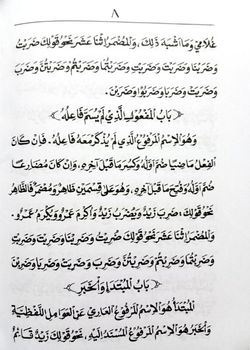 ٨
غُلَامِي وَمَا أَشْبَهَ ذٰلِكَ، وَالْمُضْمَرُ اثْنَا عَشَرَ نَحْوُ قَوْلِكَ ضَرَبْتُ
وَضَرَبْنَا وَضَرَبْتَ وَضَرَبْتِ وَضَرَبْتُمَا وَضَرَبْتُمْ وَضَرَبْتُنَّ
وَضَرَبَ وَضَرَبَتْ وَضَرَبَا وَضَرَبُوا وَضَرَبْنَ.
﴿ بَابُ الْمَفْعُولِ الَّذِي لَمْ يُسَمَّ فَاعِلُهُ ﴾
وَهُوَ الْاِسْمُ الْمَرْفُوعُ الَّذِي لَمْ يُذْكَرْ مَعَهُ فَاعِلُهُ. فَإِنْ كَانَ
الْفِعْلُ مَاضِيًا ضُمَّ أَوَّلُهُ وَكُسِرَ مَا قَبْلَ آخِرِهِ، وَإِنْ كَانَ مُضَارِعًا
ضُمَّ أَوَّلُهُ وَفُتِحَ مَا قَبْلَ آخِرِهِ. وَهُوَ عَلَى قِسْمَيْنِ ظَاهِرٌ وَمُضْمَرٌ فَالظَّاهِرُ
نَحْوُ قَوْلِكَ: ضُرِبَ زَيْدٌ وَيُضْرَبُ زَيْدٌ وَأُكْرِمَ عَمْرٌو وَيُكْرَمُ عَمْرٌو.
وَالْمُضْمَرُ اثْنَا عَشَرَ نَحْوُ قَوْلِكَ ضُرِبْتُ وَضُرِبْنَا وَضُرِبْتَ وَضُرِبْتِ
وَضُرِبْتُمَا وَضُرِبْتُمْ وَضُرِبْتُنَّ وَضُرِبَ وَضُرِبَتْ وَضُرِبَا وَضُرِبُوا وَضُرِبْنَ
﴿ بَابُ الْمُبْتَدَإِ وَالْخَبَرِ ﴾
الْمُبْتَدَأُ هُوَ الْاِسْمُ الْمَرْفُوعُ الْعَارِي عَنِ الْعَوَامِلِ اللَّفْظِيَّةِ
وَالْخَبَرُ هُوَ الْاِسْمُ الْمَرْفُوعُ الْمُسْنَدُ إِلَيْهِ، نَحْوُ قَوْلِكَ زَيْدٌ قَائِمٌ